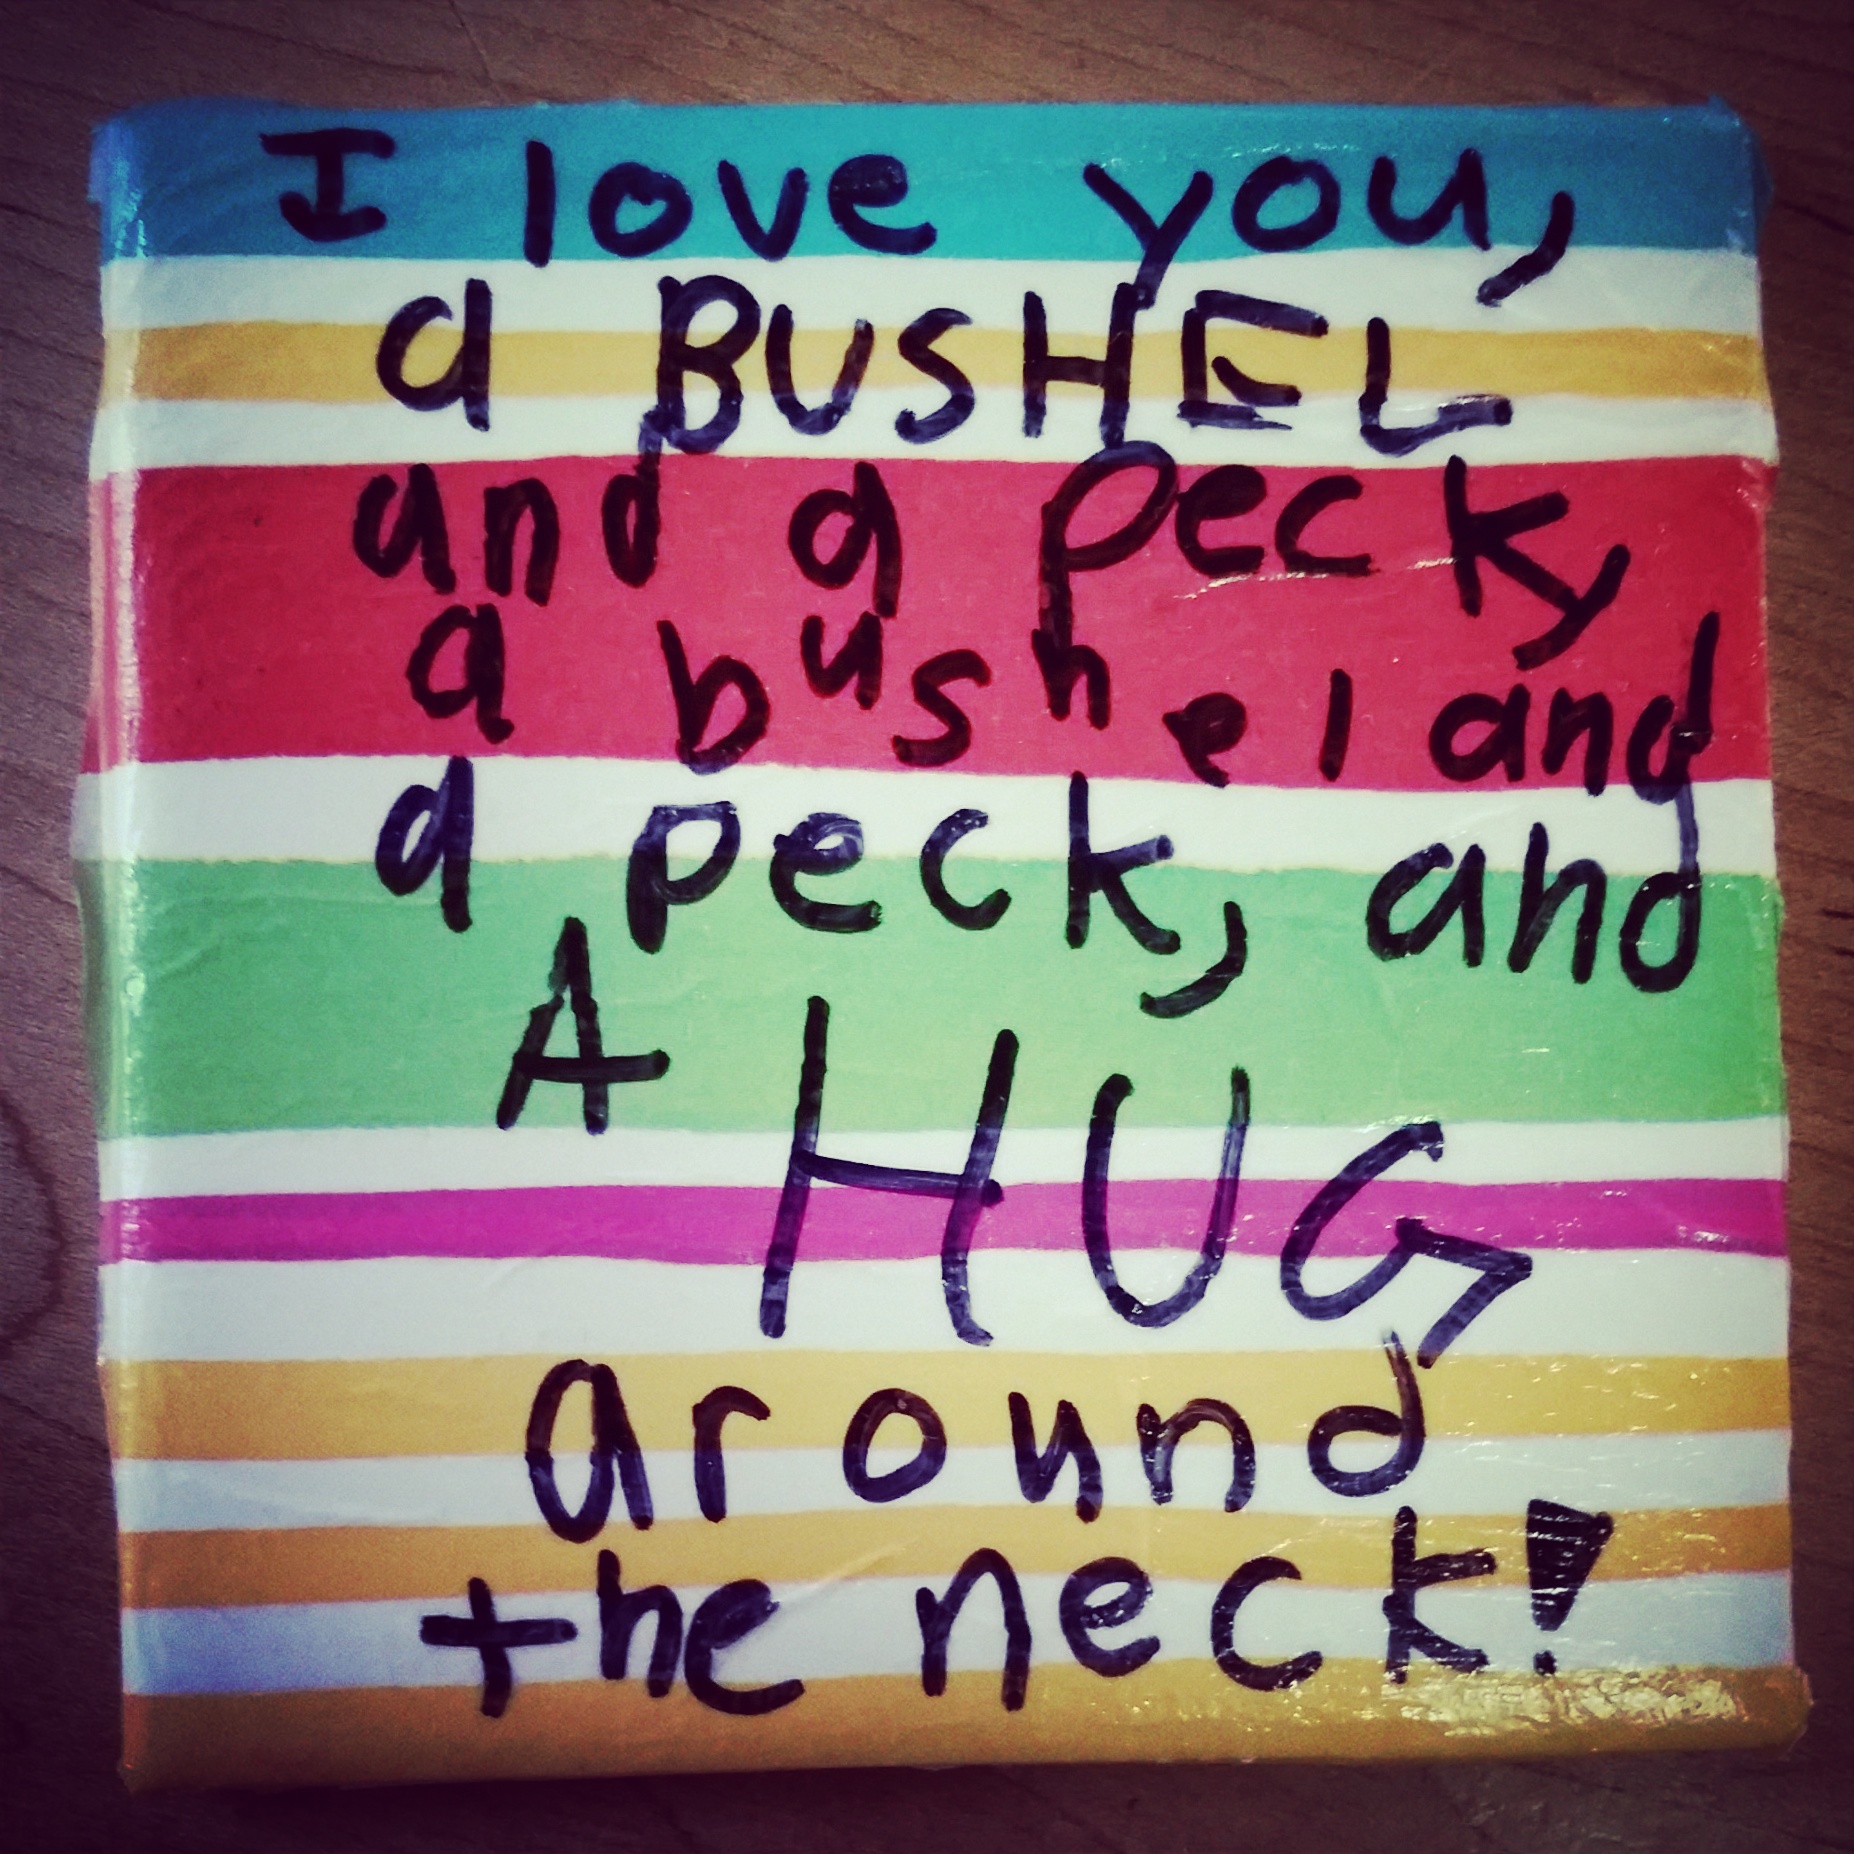 I love you,
a BUSHEL
and a peck,
a bushel and
a peck, and
A HUG
around
the neck!